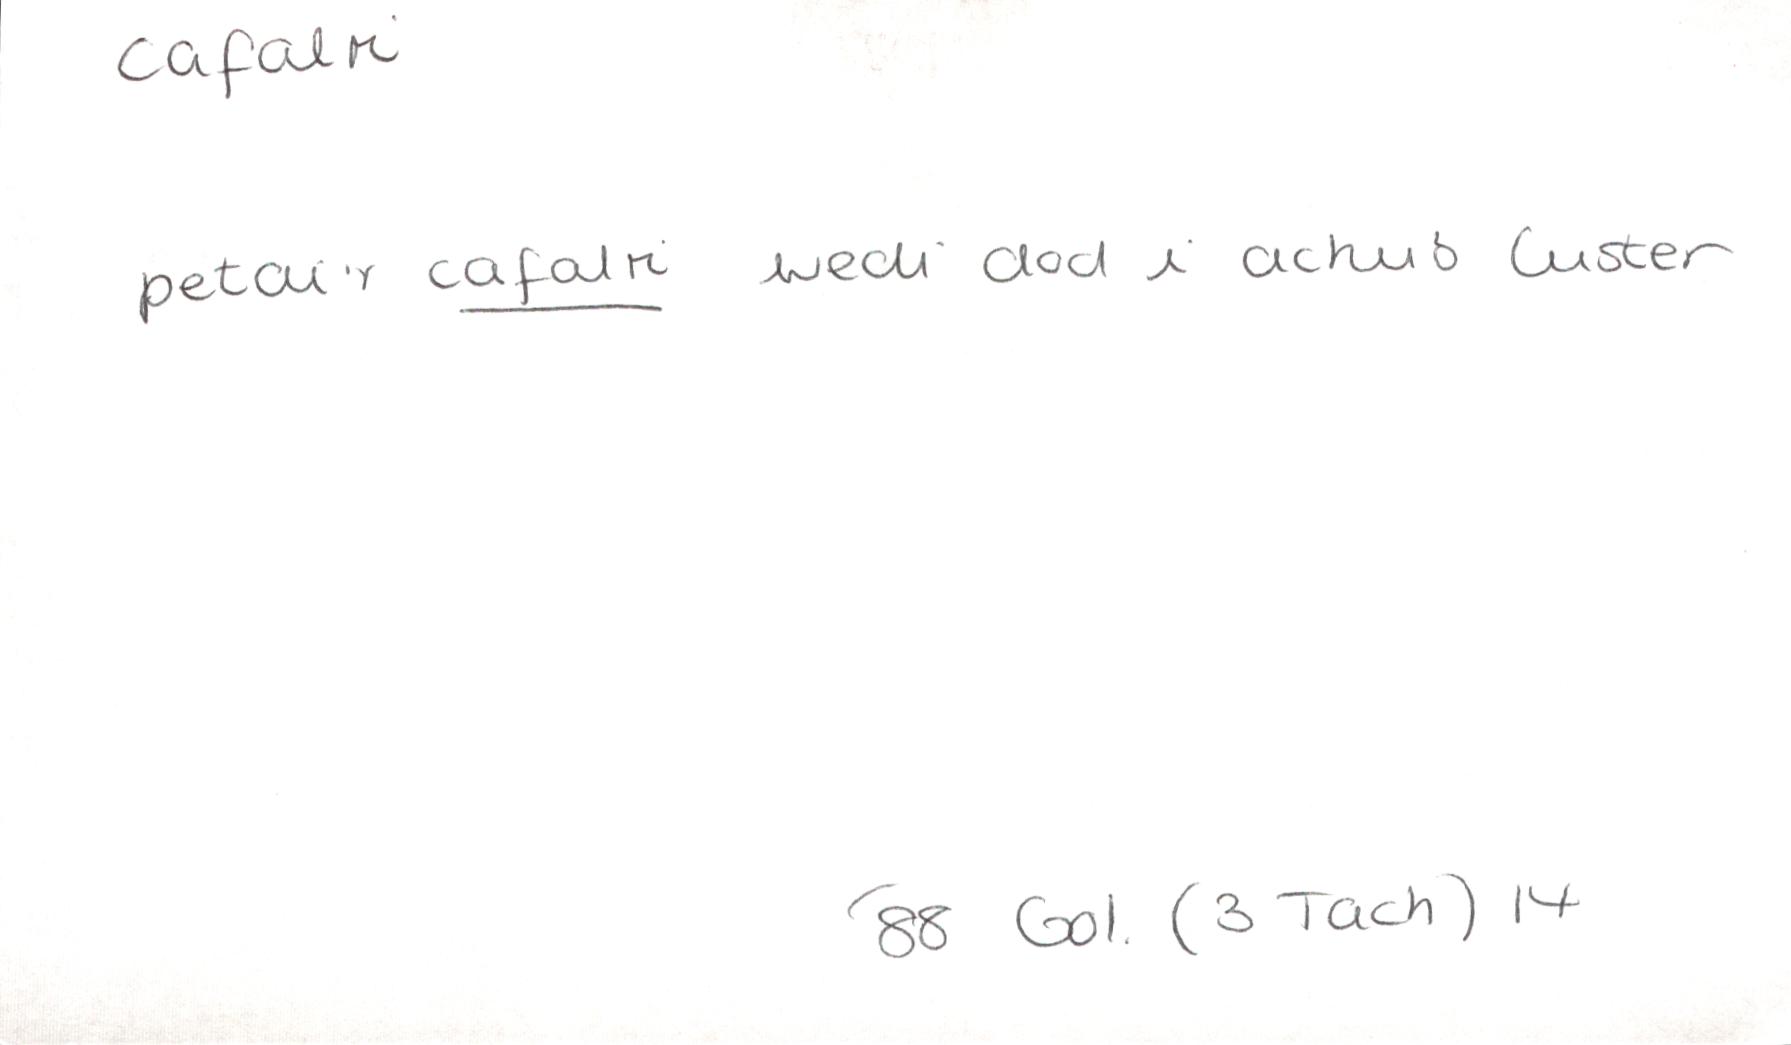 cafalri
petai'r cafalri wedi dod i achub Custer
'88 Gol. (3 Tach) 14